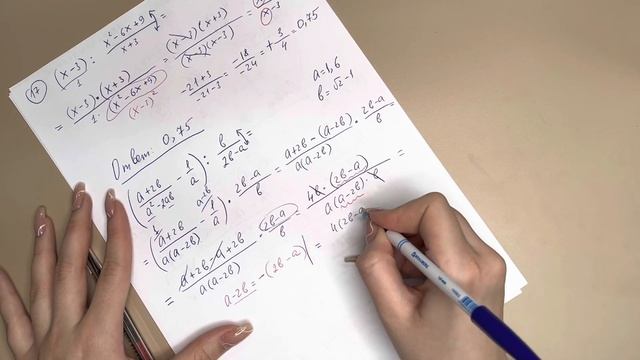 17 (x-3)/1 : (x²-6x+9)/(x+3) = ((x-3)(x+3))/((x-3)(x-3)) =
= ((x-3)·(x+3))/(1·(x²-6x+9)) (-21+3)/(-21-3) = -18/-24 = +3/4 = 0,75
(x-3)²
Ответ: 0,75
a=1,6
b=√2-1
((a+2b)/(a²-2ab) - 1/a) : b/(2b-a) =
= ((a+2b)/(a(a-2b)) - 1/a) · (2b-a)/b = (a+2b-(a-2b))/(a(a-2b)) · (2b-a)/b =
= (a+2b-a+2b)/(a(a-2b)) · (2b-a)/b = (4b·(2b-a))/(a(a-2b)·b) =
a-2b=-(2b-a) = 4(2b-a